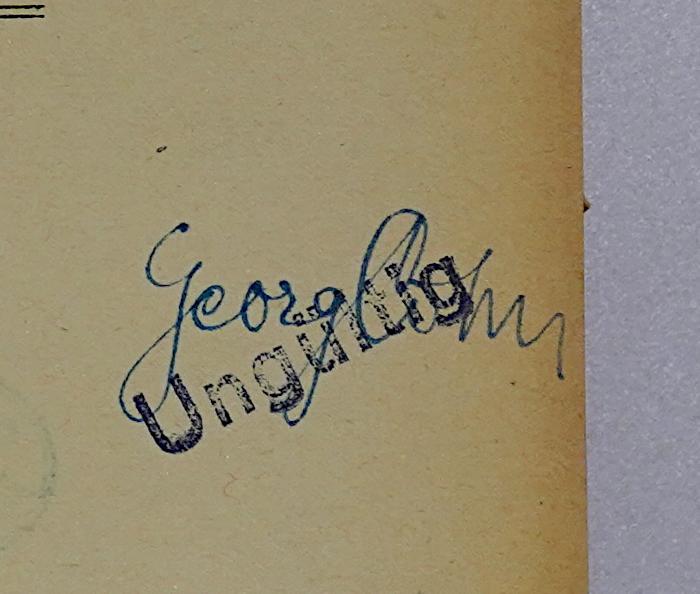 Georg Cohn
Ungültig